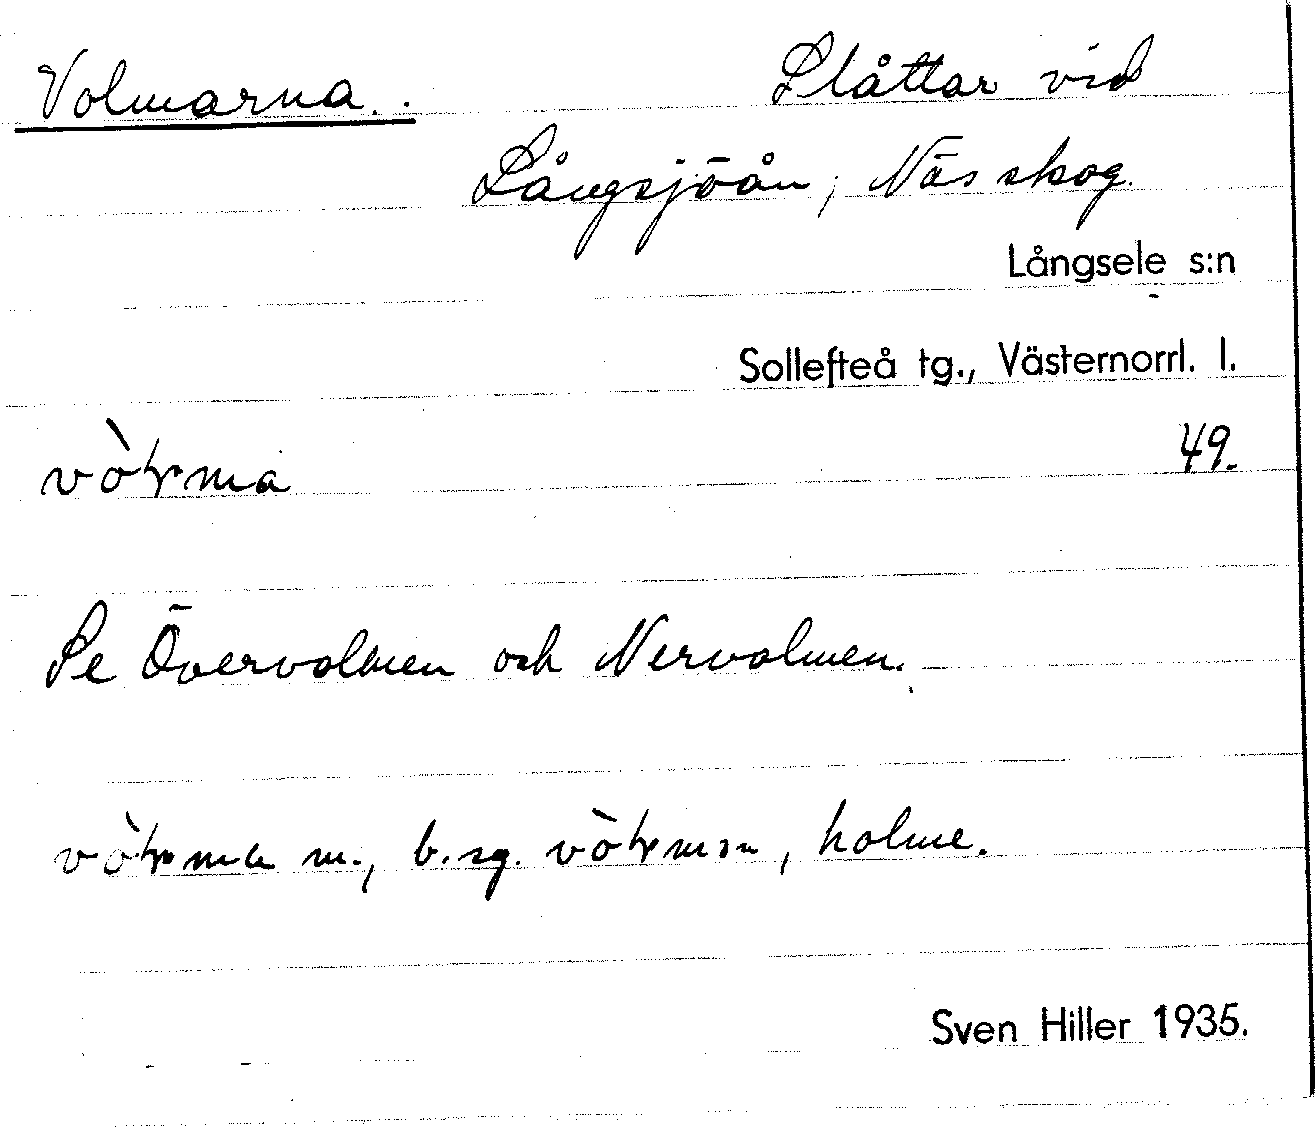 Volmarna. Slåttar vid
Långsjöån, Näs skog.
Långsele s:n
Sollefteå tg., Västernorrl. l.
49.
Se Övervolmen och Nervolmen.
m., b. sg. , holme.
Sven Hiller 1935.